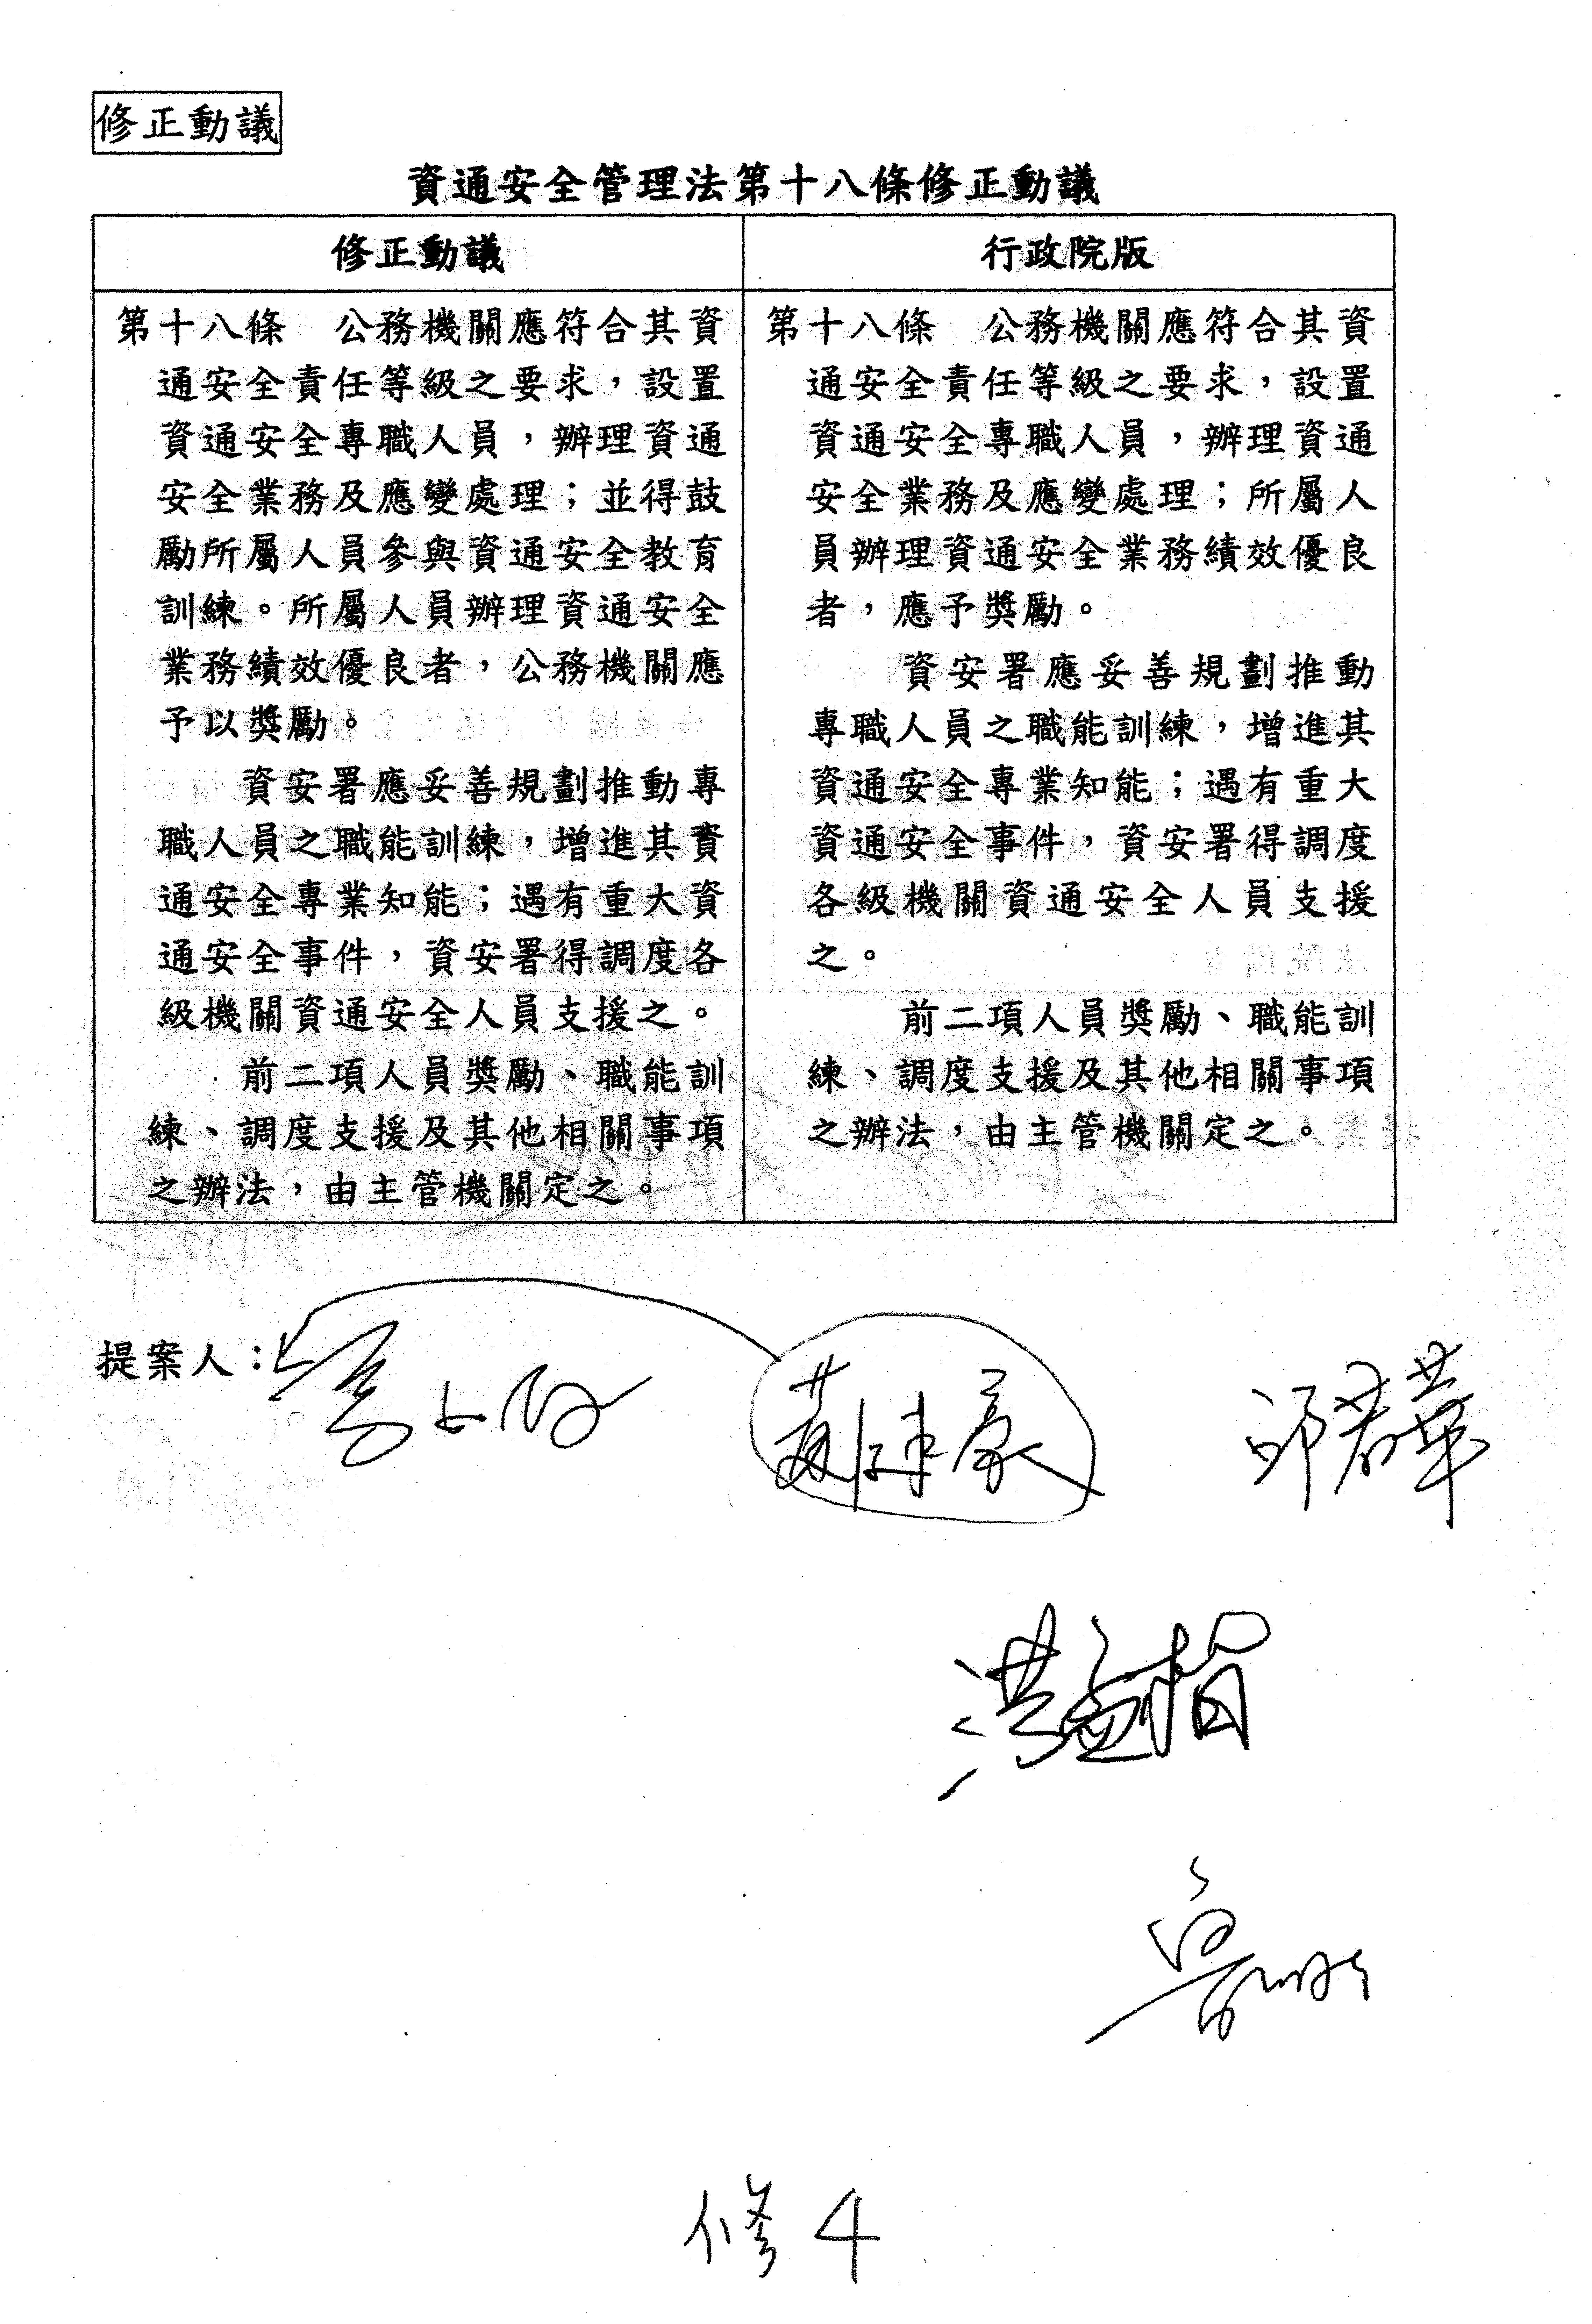 修正動議
資通安全管理法第十八條修正動議
修正動議
第十八條　公務機關應符合其資
通安全責任等級之要求，設置
資通安全專職人員，辦理資通
安全業務及應變處理；並得鼓
勵所屬人員參與資通安全教育
訓練。所屬人員辦理資通安全
業務績效優良者，公務機關應
予以獎勵。
資安署應妥善規劃推動專
職人員之職能訓練，增進其資
通安全專業知能；遇有重大資
通安全事件，資安署得調度各
級機關資通安全人員支援之。
前二項人員獎勵、職能訓
練、調度支援及其他相關事項
之辦法，由主管機關定之。
行政院版
第十八條　公務機關應符合其資
通安全責任等級之要求，設置
資通安全專職人員，辦理資通
安全業務及應變處理；所屬人
員辦理資通安全業務績效優良
者，應予獎勵。
資安署應妥善規劃推動
專職人員之職能訓練，增進其
資通安全專業知能；遇有重大
資通安全事件，資安署得調度
各級機關資通安全人員支援
之。
前二項人員獎勵、職能訓
練、調度支援及其他相關事項
之辦法，由主管機關定之。
提案人：
邱若華
洪孟楷
修4